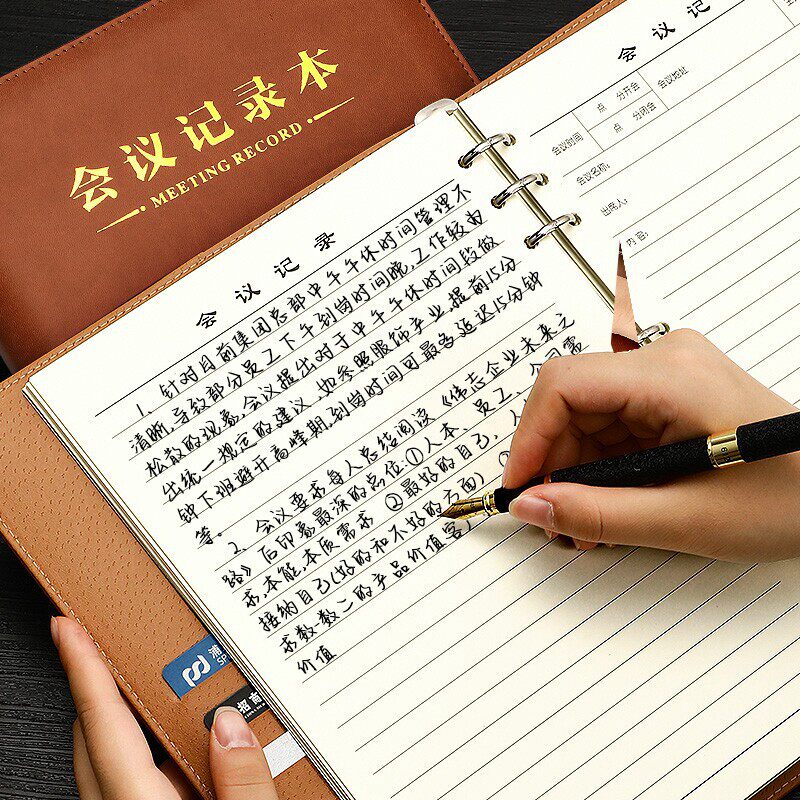 会议记录本
MEETING RECORD
会议记录
1、针对目前集团总部中午午休时间管理不
清晰,导致部分员工下午到岗时间晚,工作较为
松散的现象,会议提出对于中午午休时间段做
出统一规定的建议,如参照服饰产业,提前15分
钟下班避开高峰期,到岗时间可最多延迟15分钟
等。
2、会议要求每人总结阅读《伟志企业未来之
路》后印象最深的点位:①人本、员工、公司需
求,本能,本质需求 ②最好的自己,人
接纳自己(好的和不好的方面)
求数:数之的产品价值客
价值
会议记
会议时间
点 分开会
点 分闭会
会议地址
会议名称:
出席人:
内容:
浦
SP
招商